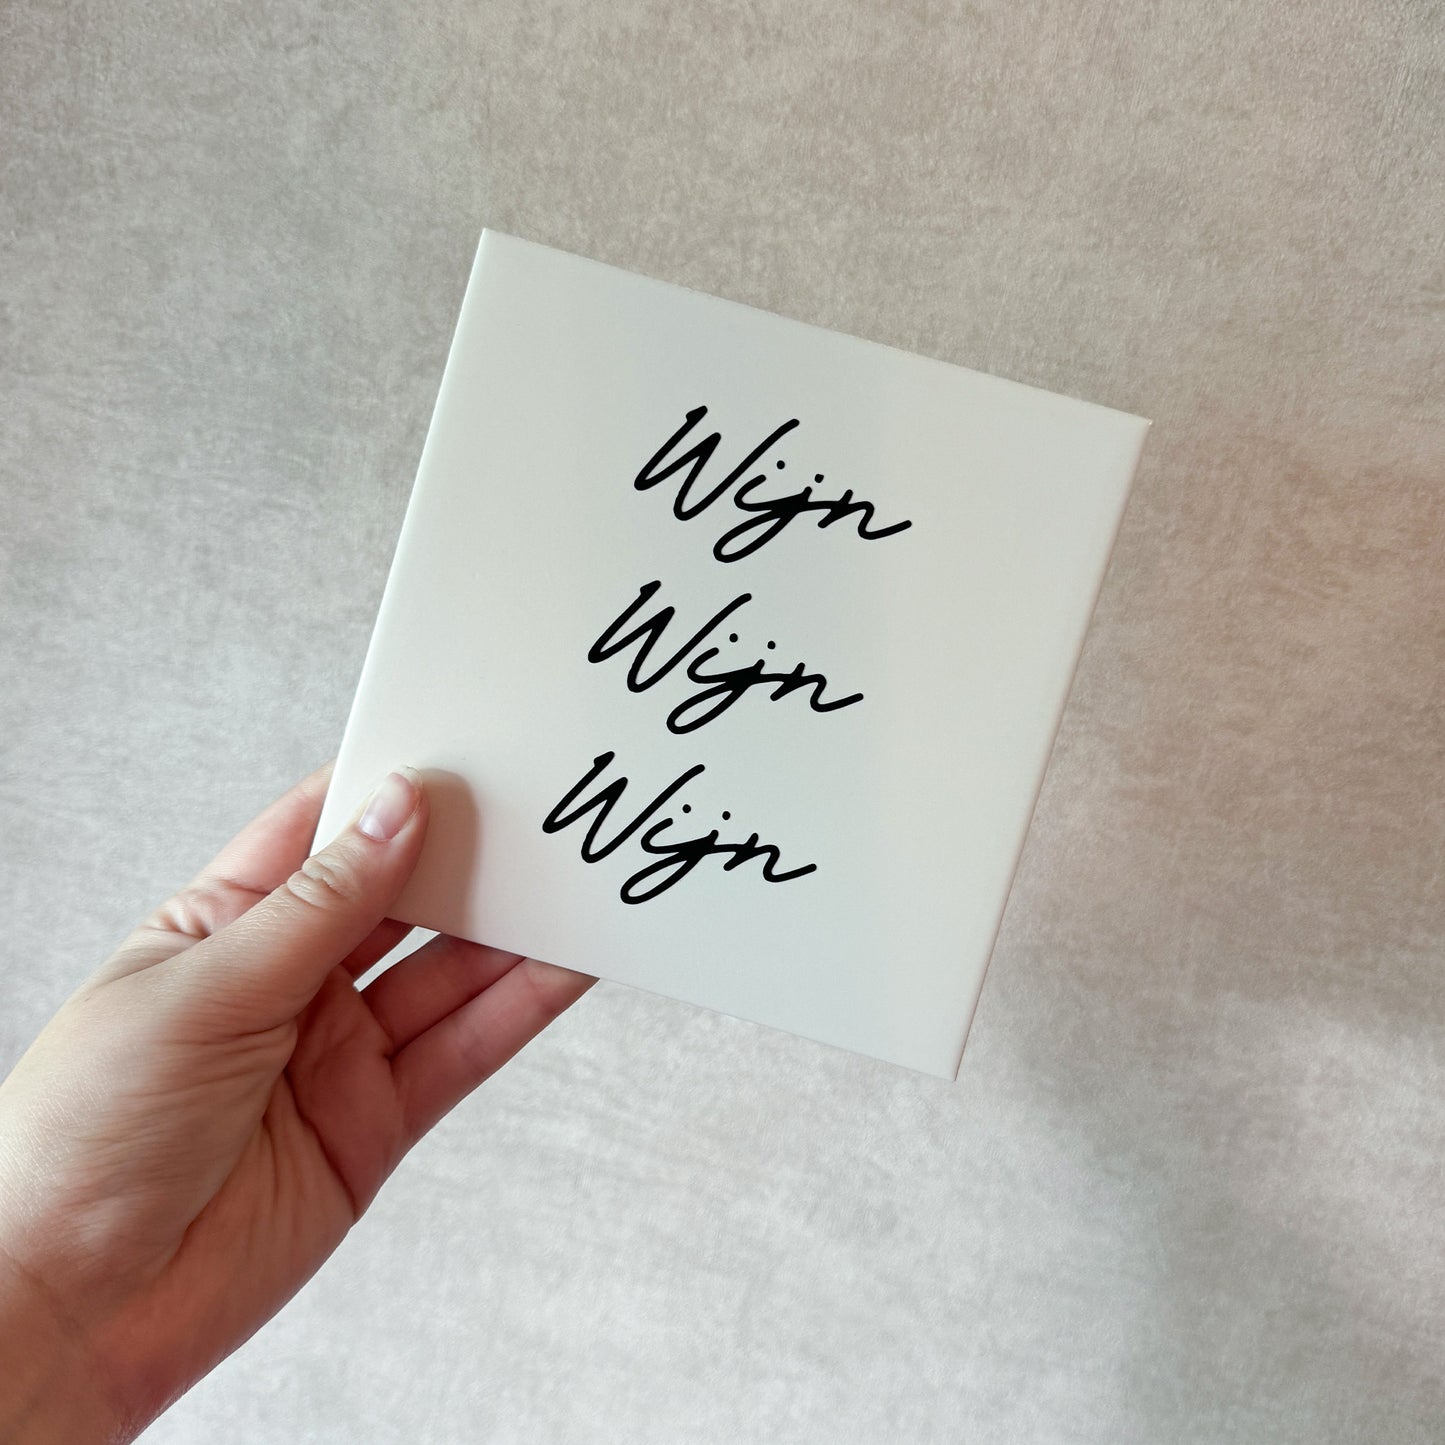 Wijn
Wijn
Wijn